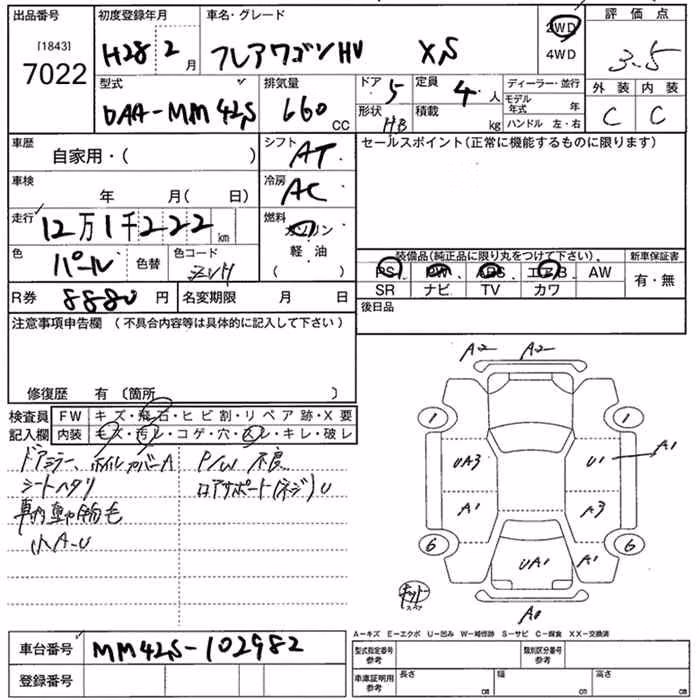 出品番号 初度登録年月 車名・グレード 2WD 評価点
[1843] 7022 H28 2月 フレアワゴンHV XS 4WD 3.5
型式 排気量 ドア 定員 ディーラー・並行 外装 内装
DAA-MM42S 660 CC 5 4人 モデル年式 年 C C
形状 HB 積載 kg ハンドル 左・右
車歴 シフト セールスポイント(正常に機能するものに限ります)
自家用・( ) AT
車検 冷房
年 月( 日) AC
走行 燃料
12万1千222km ガソリン
色 色替 色コード 軽油 装備品(純正品に限り丸をつけて下さい)。 新車保証書
パール ZVH ( ) PS PW ABS エアB AW 有・無
R券 8880円 名変期限 月 日 SR ナビ TV カワ
注意事項申告欄 (不具合内容等は具体的に記入して下さい) 後日品
修復歴 有 (箇所 )
検査員 FW キズ・飛石・ヒビ割・リペア跡・X要
記入欄 内装 キズ・汚レ・コゲ・穴・スレ・キレ・破レ
ドアミラー、ホイルカバーA P/W不良
シートヘタリ ロアサポート(ネジ)U
車内動物毛
小A-U
A2 A2
1 1
UA3 U1 A1
A1 A3
6 6
UA1 A1
キット
スペア
A1
A-キズ E-エクボ U-凹み W-補修跡 S-サビ C-腐食 XX-交換済
車台番号 MM42S-102982 型式指定番号 参考 類別区分番号 参考
登録番号 車庫証明用 参考 長さ cm 幅 cm 高さ cm